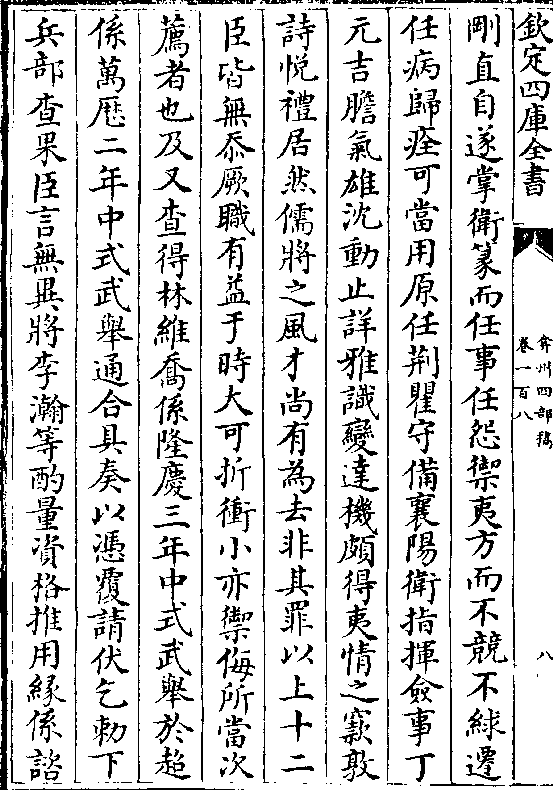 欽定四庫全書
弇州四部稿
卷一百八
八
剛直自遂掌衛篆而任事任怨禦夷方而不競不絿遷
任病歸痊可當用原任荆瞿守備襄陽衛指揮僉事丁
元吉膽氣雄沈動止詳雅識變達機頗得夷情之窾敦
詩悦禮居然儒將之風才尚有為去非其罪以上十二
臣皆無忝厥職有益于時大可折衝小亦禦侮所當次
薦者也及又查得林維喬係隆慶三年中式武舉於超
係萬厯二年中式武舉通合具奏以憑覆請伏乞勅下
兵部查果臣言無異將李瀚等酌量資格推用緣係諮